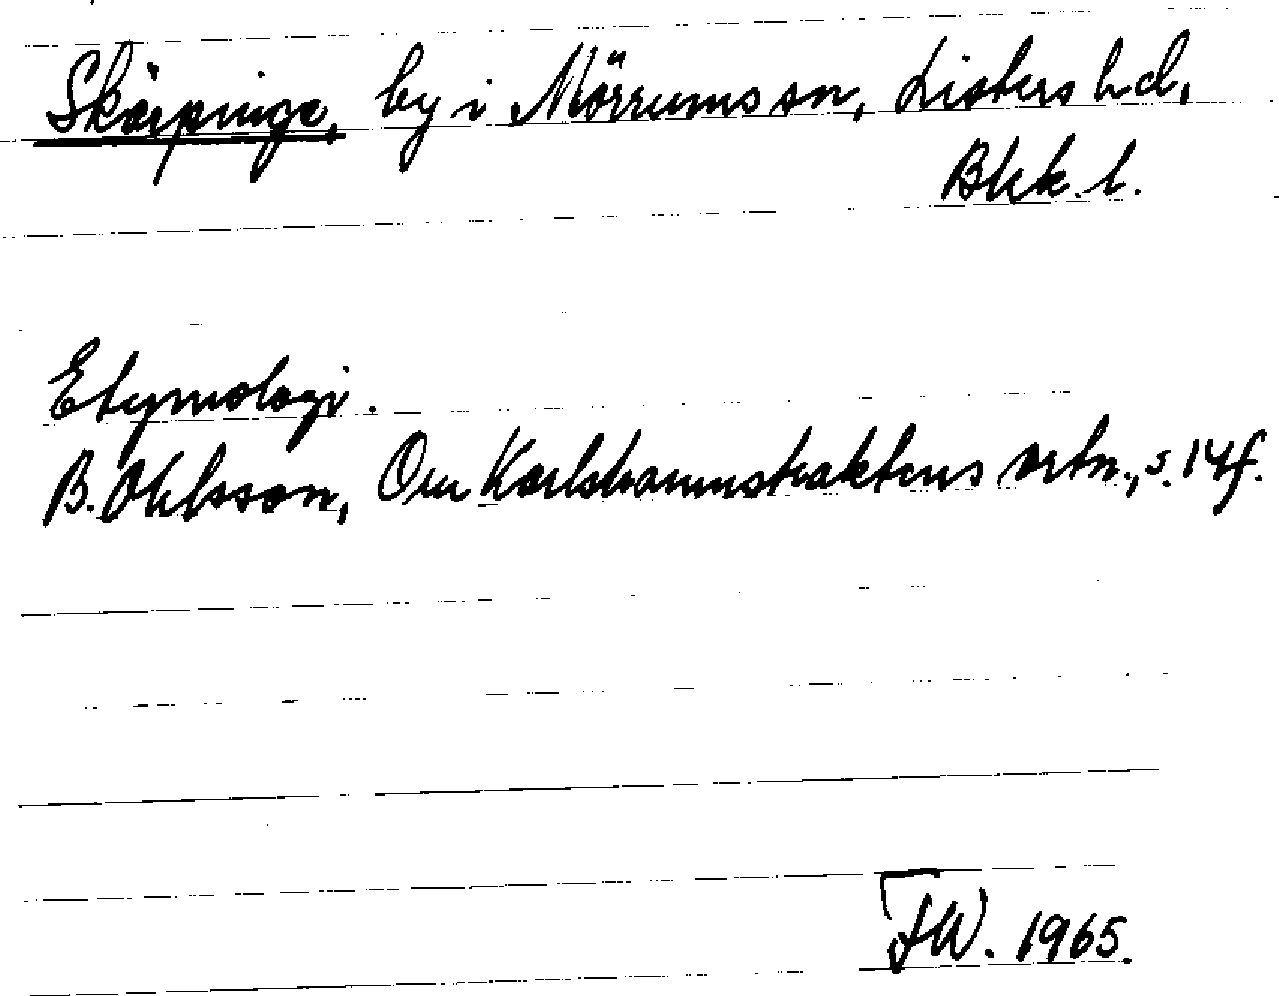 Skärpinge, by i Mörrums sn, Listers hd,
Blek. l.
Etymologi.
B. Ohlsson, Om Karlshamnstraktens ortn., s. 14f.
FW. 1965.